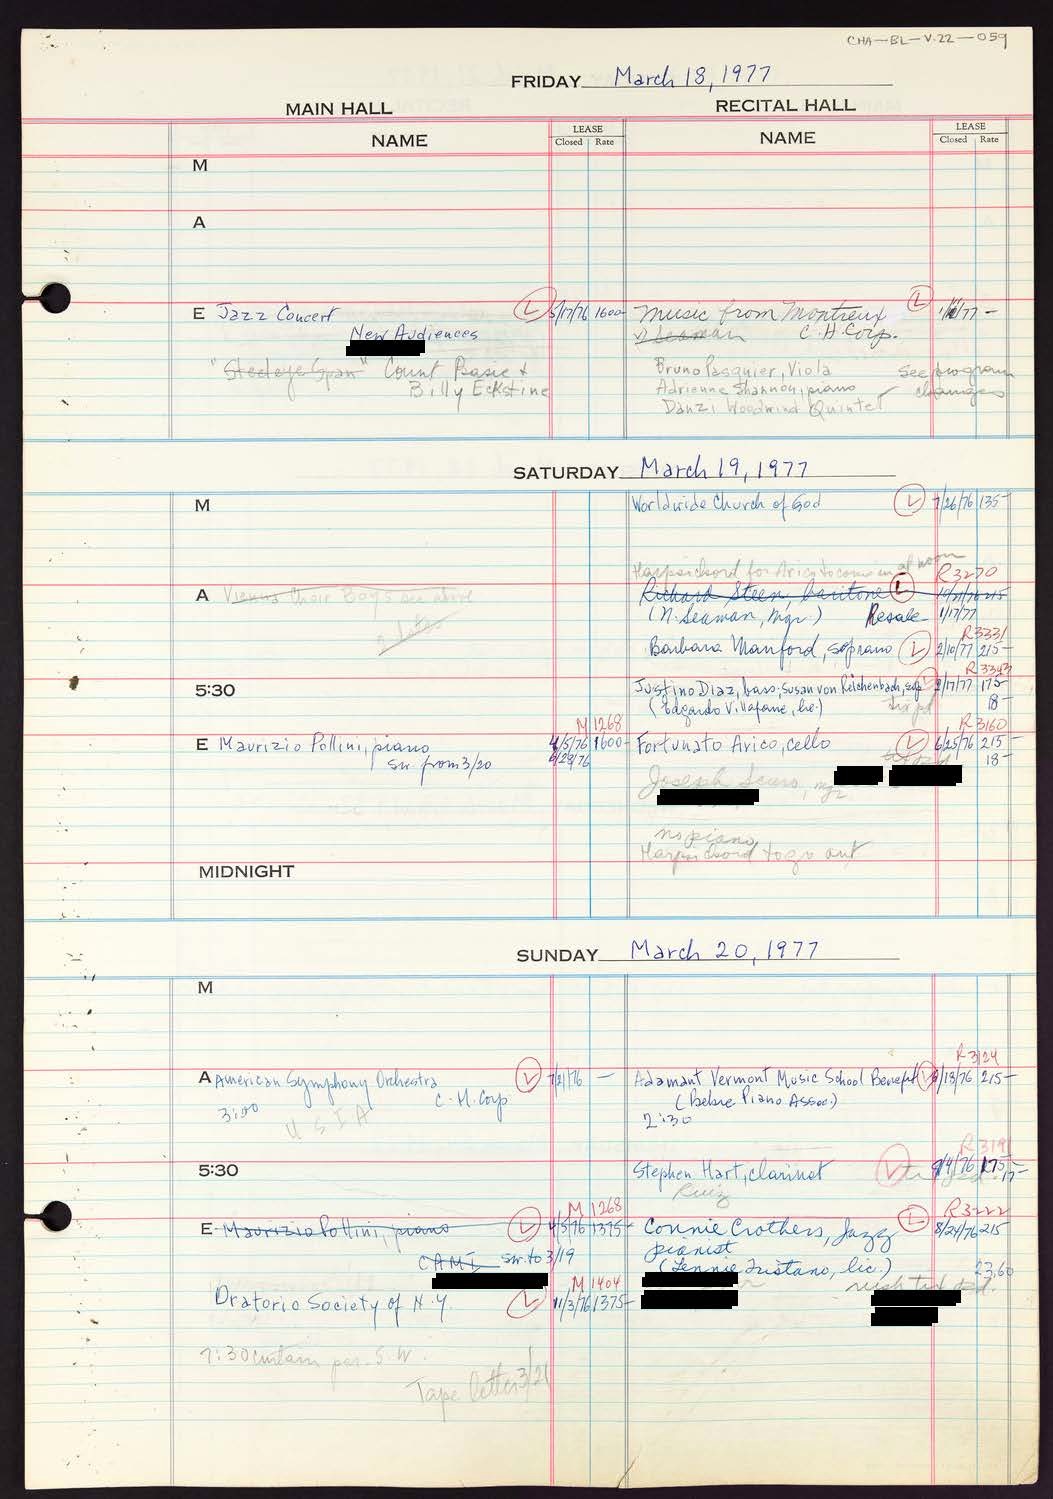 CHA-BL-V.22-059
FRIDAY March 18, 1977
MAIN HALL
RECITAL HALL
NAME
LEASE
Closed Rate
NAME
LEASE
Closed Rate
M
A
E Jazz Concert L 5/17/76 1600-
New Audiences
"Steeleye Span" Count Basie &
Billy Eckstine
Music from Montreux L 1/ /77 -
Seaman C.H. Corp.
Bruno Pasquier, Viola
Adrienne Shannon, piano
Danzi Woodwind Quintet
See program
changes
SATURDAY March 19, 1977
M
Worldwide Church of God L 7/26/76 135-
Harpsichord for Arico to come in at noon
R3270
A Vienna Choir Boys see above
Richard Steen, baritone L 215
(N. Seaman, Mgr.) Resale 1/17/77
R3331
Barbara Manford, soprano L 2/10/77 215-
R3343
5:30
Justino Diaz, bass; Susan von Reichenbach, sop L 2/17/77 175-
(Edgardo Villafane, lic.) 18-
M1268
R3160
E Maurizio Pollini, piano 4/5/76 1600-
sw. from 3/20 6/23/76
Fortunato Arico, cello L 6/25/76 215-
18-
Joseph Scuro, mgr
no piano
Harpsichord to go out
MIDNIGHT
SUNDAY March 20, 1977
M
R3124
A American Symphony Orchestra L 7/21/76 -
3:00 C.H. Corp
USIA
Adamant Vermont Music School Benefit L /13/76 215-
(Bebre Piano Assoc.)
2:30
R3191
5:30
Stephen Hart, clarinet L 9/4/76 175
17-
Ruiz
M1268
R3222
E Maurizio Pollini, piano L 4/5/76 1375-
CAMI sw. to 3/19
Connie Crothers, Jazz L 8/24/76 215
pianist
(Lennie Tristano, lic.) 23.60
M1404
Oratorio Society of N.Y. L 11/3/76 1375-
7:30 curtain per S.W.
Tape letter 3/21